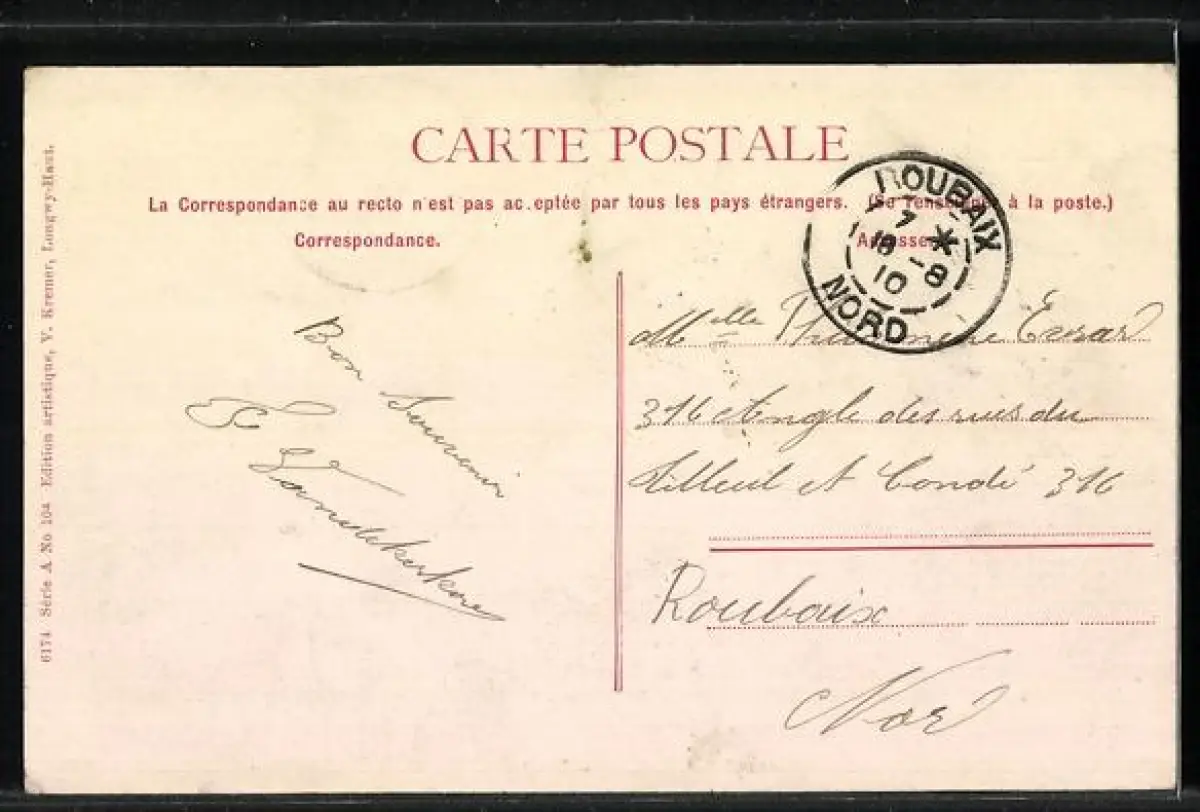 CARTE POSTALE
La Correspondance au recto n'est pas acceptée par tous les pays étrangers. (Se renseigner à la poste.)
Correspondance.
Adresse
ROUBAIX
7 *
18 -8
10
NORD
Bon Souvenir
Melle Evrard
316 Angle des rues du
Tilleul et Condé 316
Roubaix
Nord
6174 Série A No 104 Edition artistique, V. Kremer, Longwy-Haut.